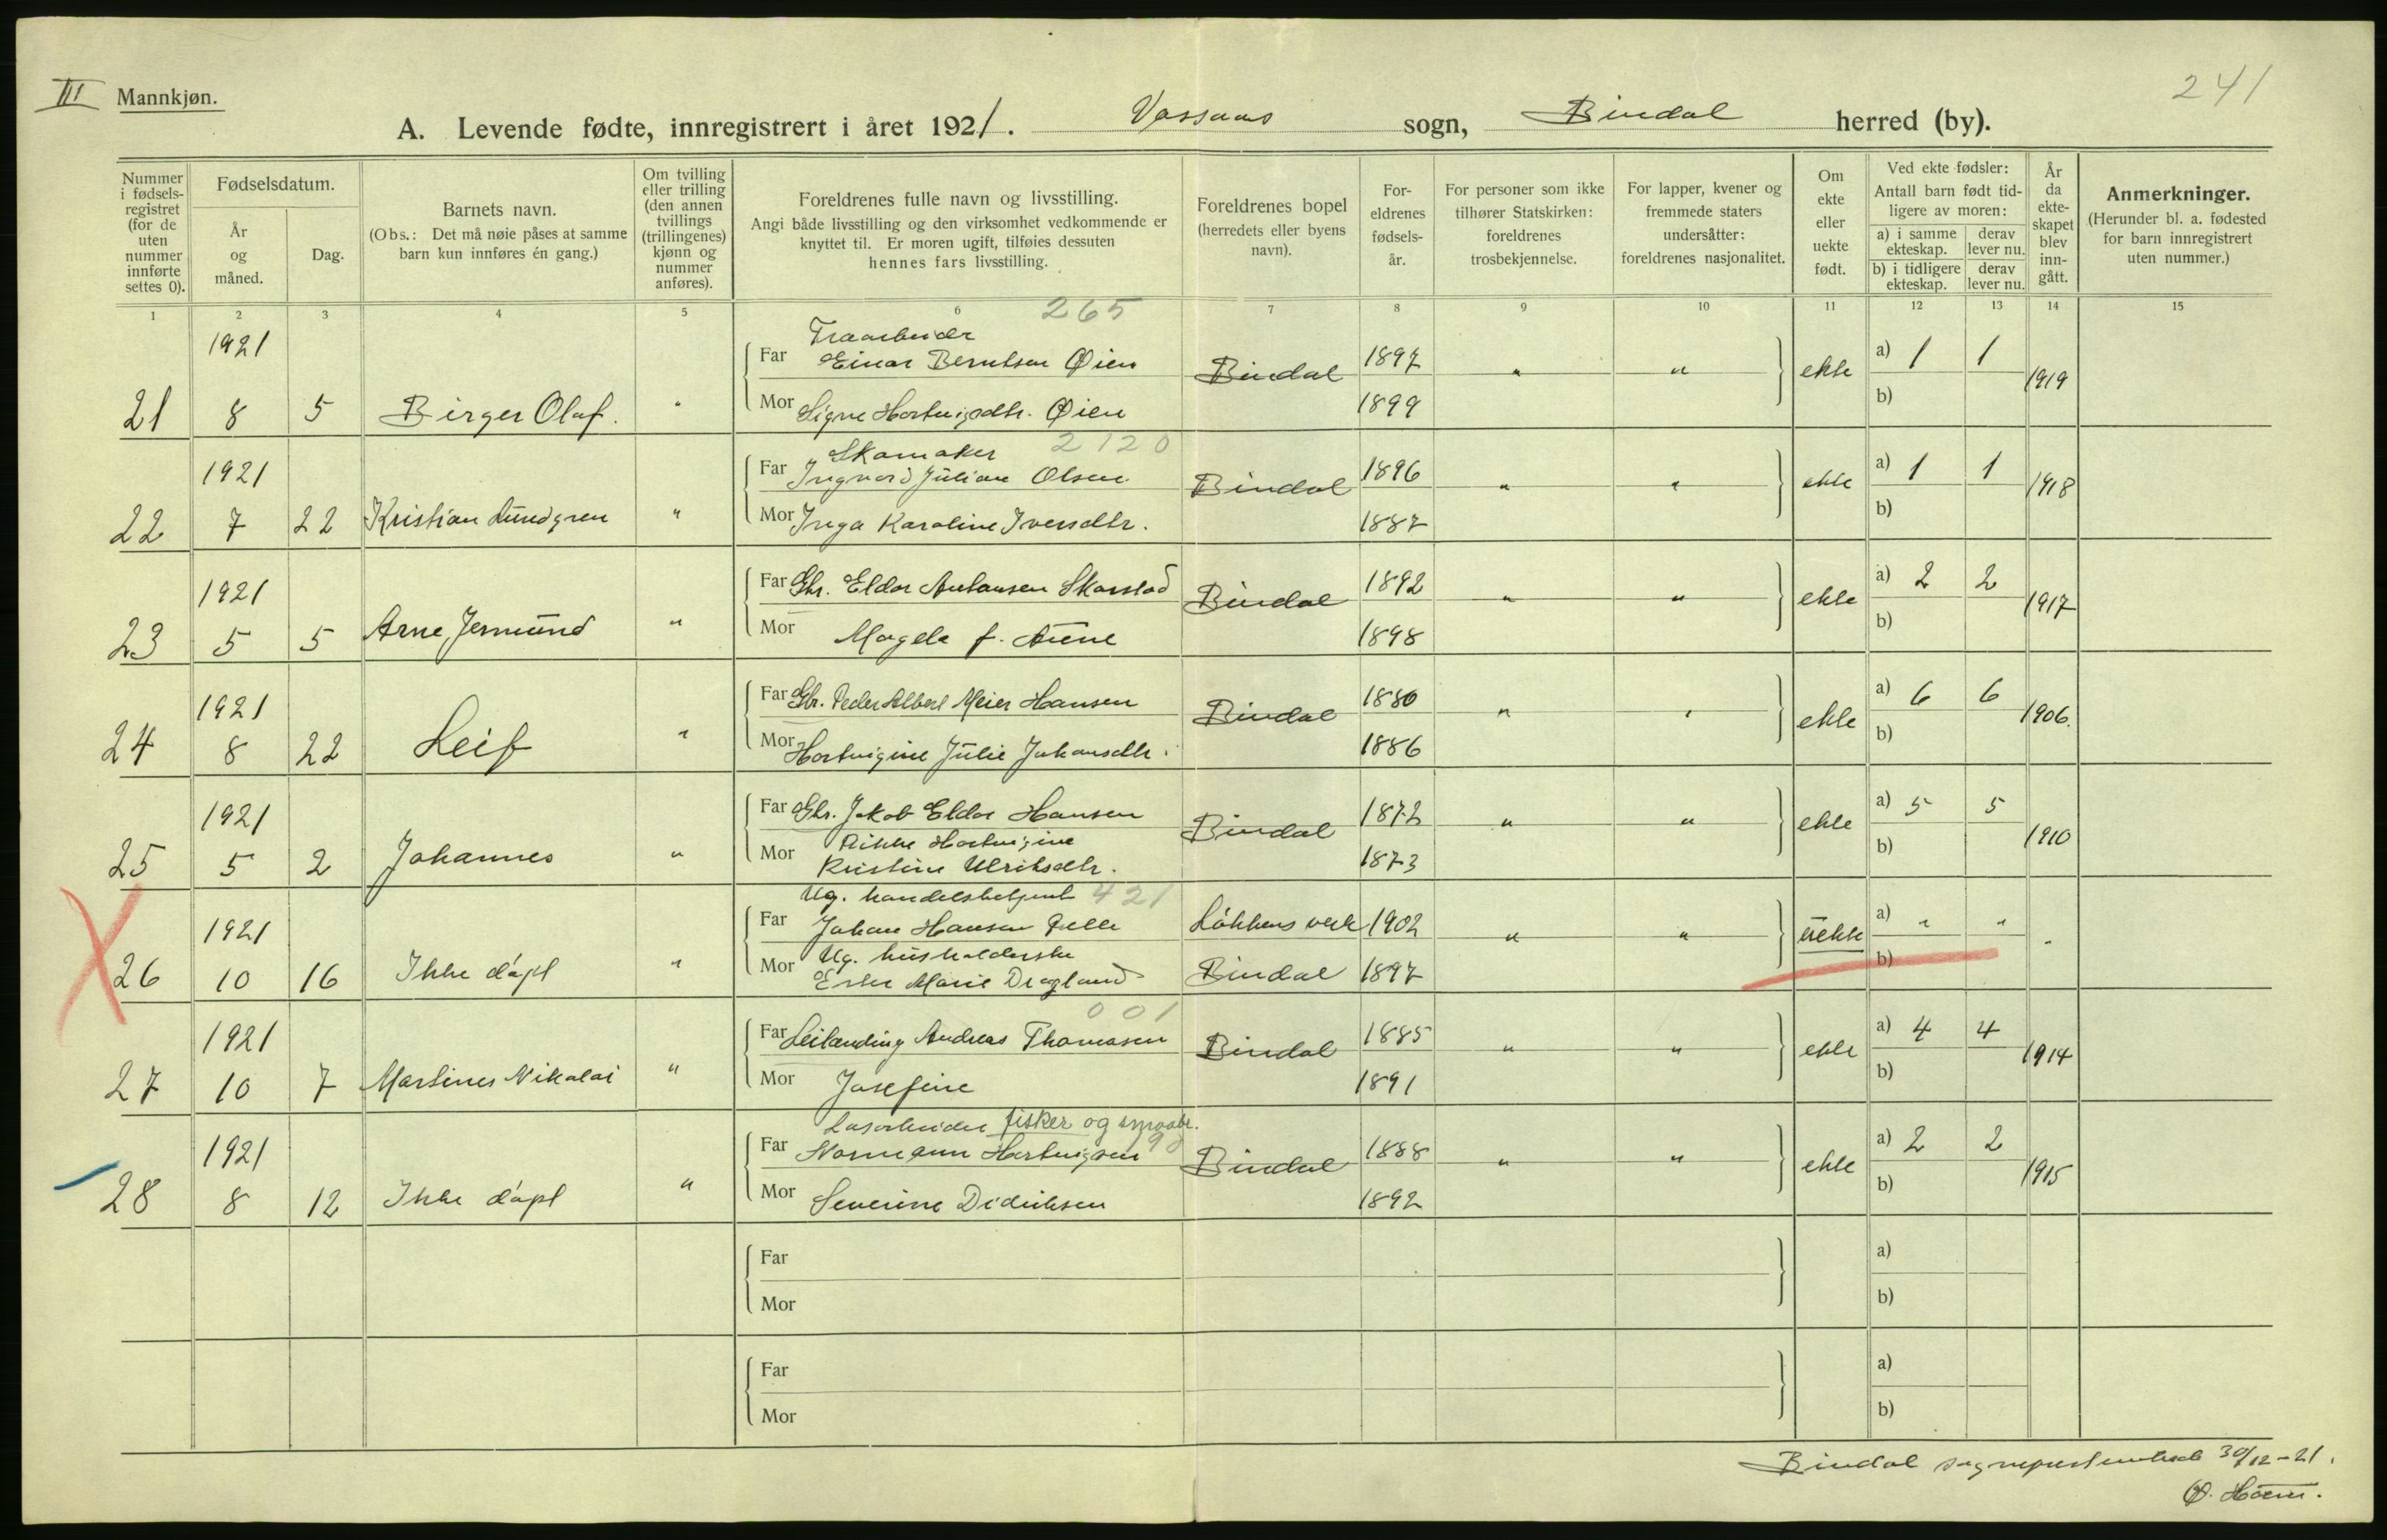 III Mannkjøn.
241
A. Levende fødte, innregistrert i året 1921. Vassaas sogn, Bindal herred (by).
Nummer i fødsels-registret (for de uten nummer innførte settes 0).
Fødselsdatum.
År og måned.
Dag.
Barnets navn.
(Obs.: Det må nøie påses at samme barn kun innføres én gang.)
Om tvilling eller trilling (den annen tvillings (trillingenes) kjønn og nummer anføres).
Foreldrenes fulle navn og livsstilling.
Angi både livsstilling og den virksomhet vedkommende er knyttet til. Er moren ugift, tilføies dessuten hennes fars livsstilling.
Foreldrenes bopel (herredets eller byens navn).
For-eldrenes fødsels-år.
For personer som ikke tilhører Statskirken: foreldrenes trosbekjennelse.
For lapper, kvener og fremmede staters undersåtter: foreldrenes nasjonalitet.
Om ekte eller uekte født.
Ved ekte fødsler:
Antall barn født tid-ligere av moren:
a) i samme ekteskap. derav lever nu.
b) i tidligere ekteskap. derav lever nu.
År da ekte-skapet blev inn-gått.
Anmerkninger.
(Herunder bl. a. fødested for barn innregistrert uten nummer.)
1 2 3 4 5 6 7 8 9 10 11 12 13 14 15
265
Traarbeider
1921 Far Einar Berntsen Øien Bindal 1897 " " ekte a) 1 1 1919
21 8 5 Birger Olaf. " Mor Signe Hartvigsdtr. Øien 1899 b)
Skomaker 2120
1921 Far Ingvard Julian Olsen Bindal 1896 " " ekte a) 1 1 1918
22 7 22 Kristian Lundgren " Mor Inga Karoline Iversdtr. 1887 b)
1921 Far Gbr. Eldor Antonsen Skarstad Bindal 1892 " " ekte a) 2 2 1917
23 5 5 Arne Jermund " Mor Magda f. Aune 1898 b)
1921 Far Gbr. Peder Albert Meier Hansen Bindal 1880 " " ekte a) 6 6 1906.
24 8 22 Leif " Mor Hartvigine Julie Johansdtr. 1886 b)
1921 Far Gbr. Jakob Eldor Hansen Bindal 1872 " " ekte a) 5 5 1910
25 5 2 Johannes " Mor Rikke Hartvigine Kristine Ulriksdtr. 1873 b)
Ug. handelsbetjent 421
1921 Far Johan Hansen Løkkens verk 1902 " " uekte a) " " "
Ug. husholderske
26 10 16 Ikke døpt " Mor Ester Marie Dragland Bindal 1897 b)
001
1921 Far Leilending Andreas Thomasen Bindal 1885 " " ekte a) 4 4 1914
27 10 7 Martines Nikolai " Mor Josefine 1891 b)
Løsarbeider fisker og smaabr.
90
1921 Far Normann Hartvigsen Bindal 1888 " " ekte a) 2 2 1915
28 8 12 Ikke døpt " Mor Severine Didriksen 1892 b)
Far a)
Mor b)
Far a)
Mor b)
Bindal sogneprestembede 30/12-21.